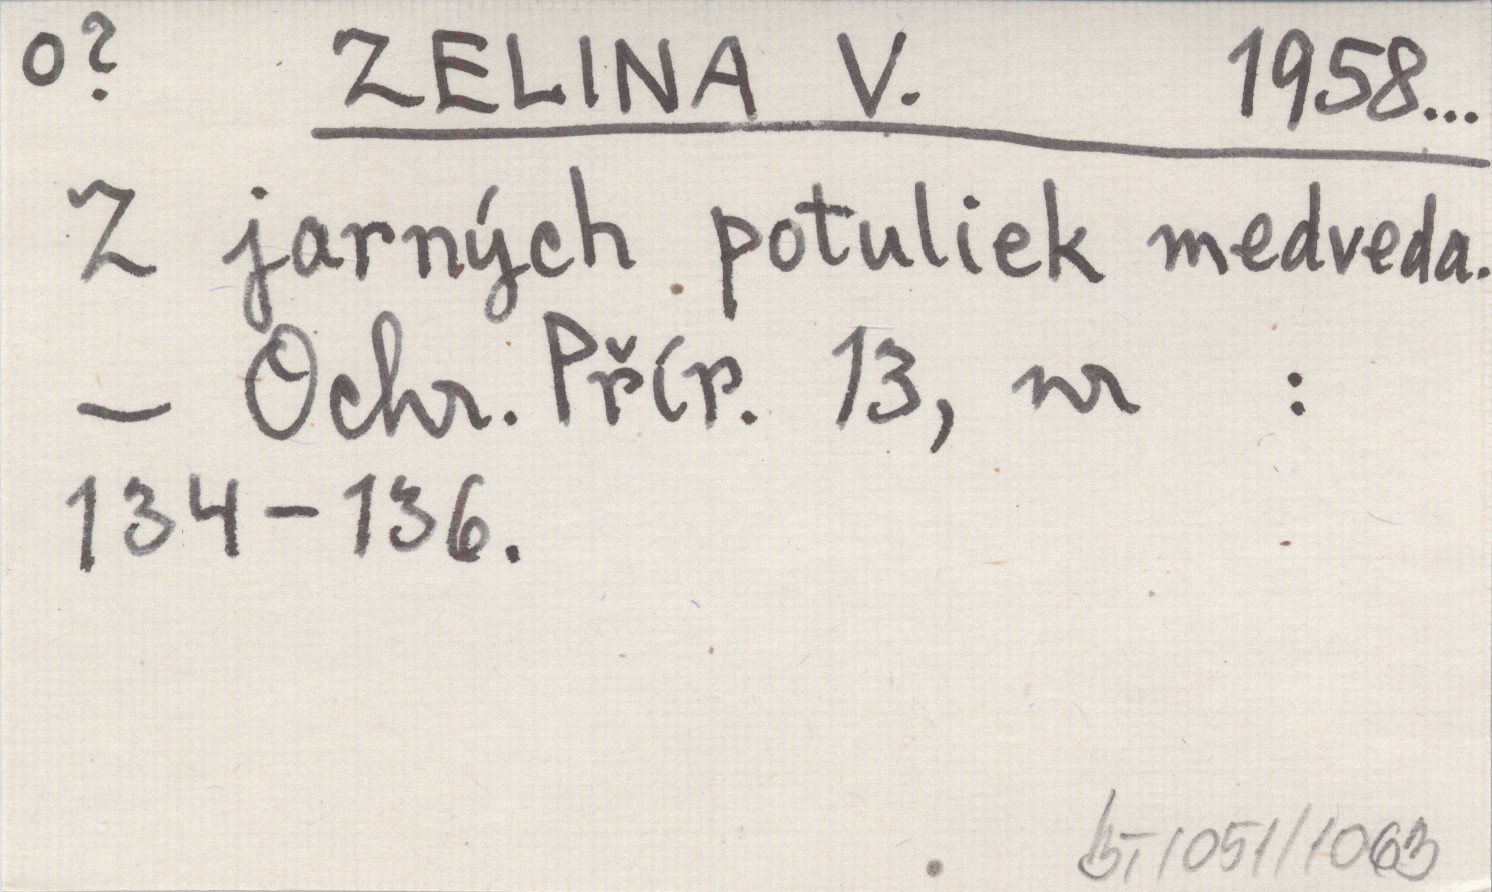 o? ZELINA V. 1958...
Z jarných potuliek medveda.
– Ochr. Přír. 13, nr :
134-136.
1051/1063